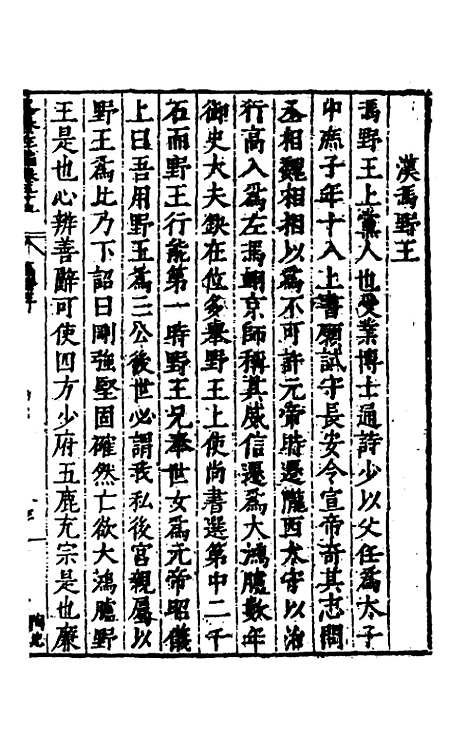 漢馮野王
馮野王上黨人也受業博士通詩少以父任爲太子
中庶子年十八上書願試守長安令宣帝奇其志問
丞相魏相相以爲不可許元帝時遷隴西太守以治
行高入爲左馮翊京師稱其威信遷爲大鴻臚數年
御史大夫缺在位多舉野王上使尚書選第中二千
石而野王行能第一時野王兄奉世女爲元帝昭儀
上曰吾用野王爲三公後世必謂我私後宮親屬以
野王爲比乃下詔曰剛強堅固確然亡欲大鴻臚野
王是也心辨善辭可使四方少府五鹿充宗是也廉